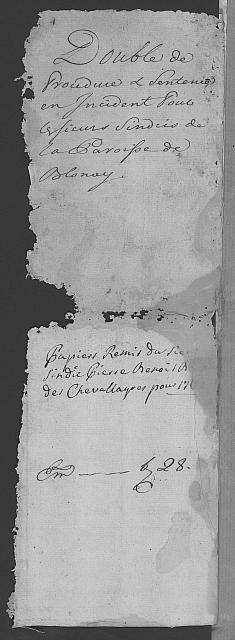 Double de
Procedure & Sentence
en Incident Pour
Sieurs Sindics de
La Paroisse de
Blonay.
Papiers Remis du Sr
Sindic Pierre Benoit
des Chevallayres pour 17
28.